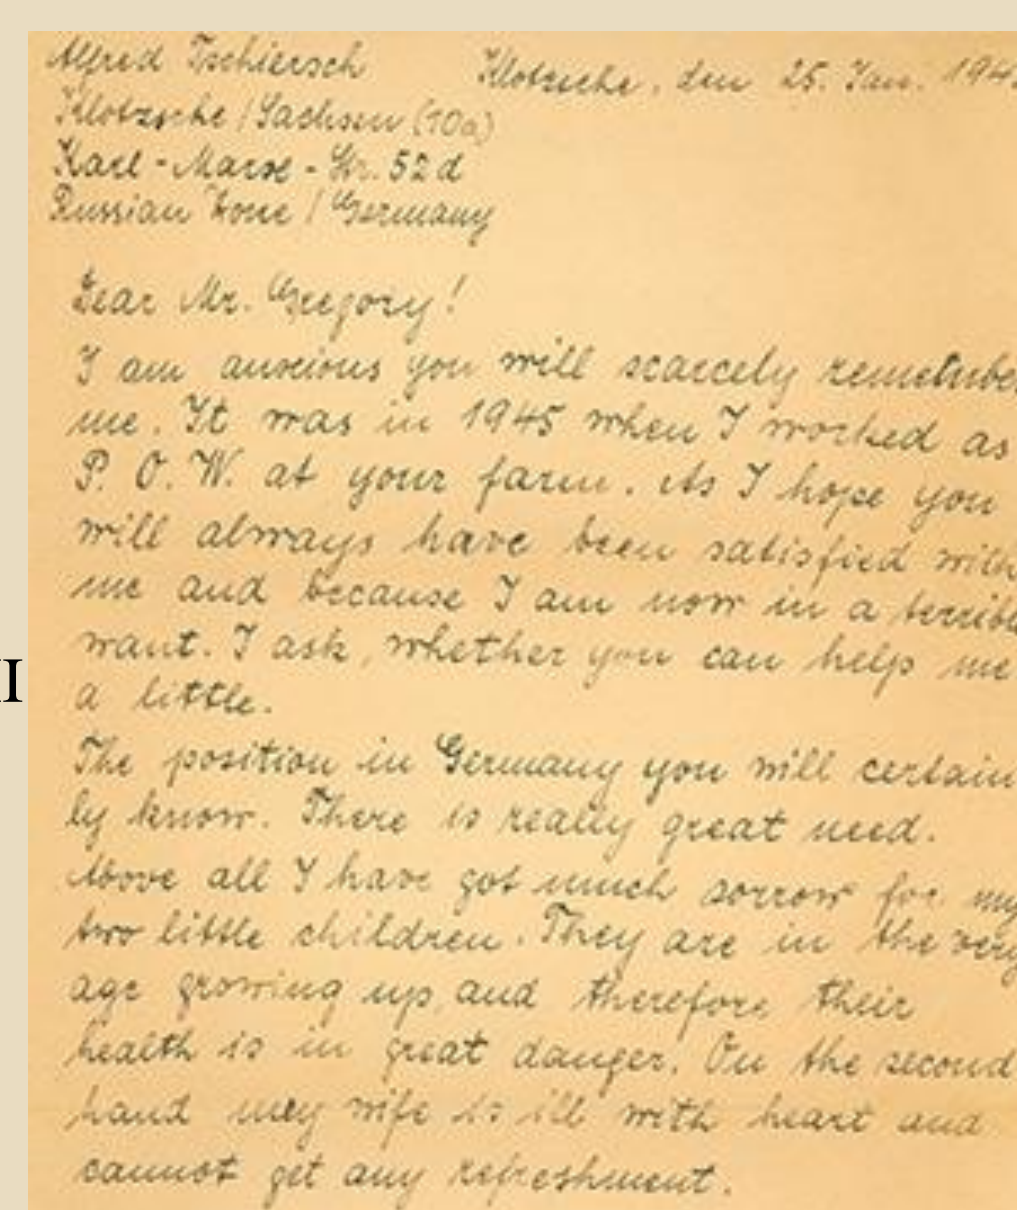 Alfred Tschiersch Klotzsche, den 25. Jan. 194
Klotzsche / Sachsen (10a)
Karl-Marx-Str. 52 d
Russian Zone / Germany
Dear Mr. Gregory!
I am anxious you will scarcely remember
me. It was in 1945 when I worked as
P. O. W. at your farm. As I hope you
will always have been satisfied with
me and because I am now in a terrible
want. I ask, whether you can help me
a little.
II
The position in Germany you will certain
ly know. There is really great need.
Above all I have got much sorrow for my
two little children. They are in the very
age growing up, and therefore their
health is in great danger. On the second
hand my wife is ill with heart and
cannot get any refreshment.